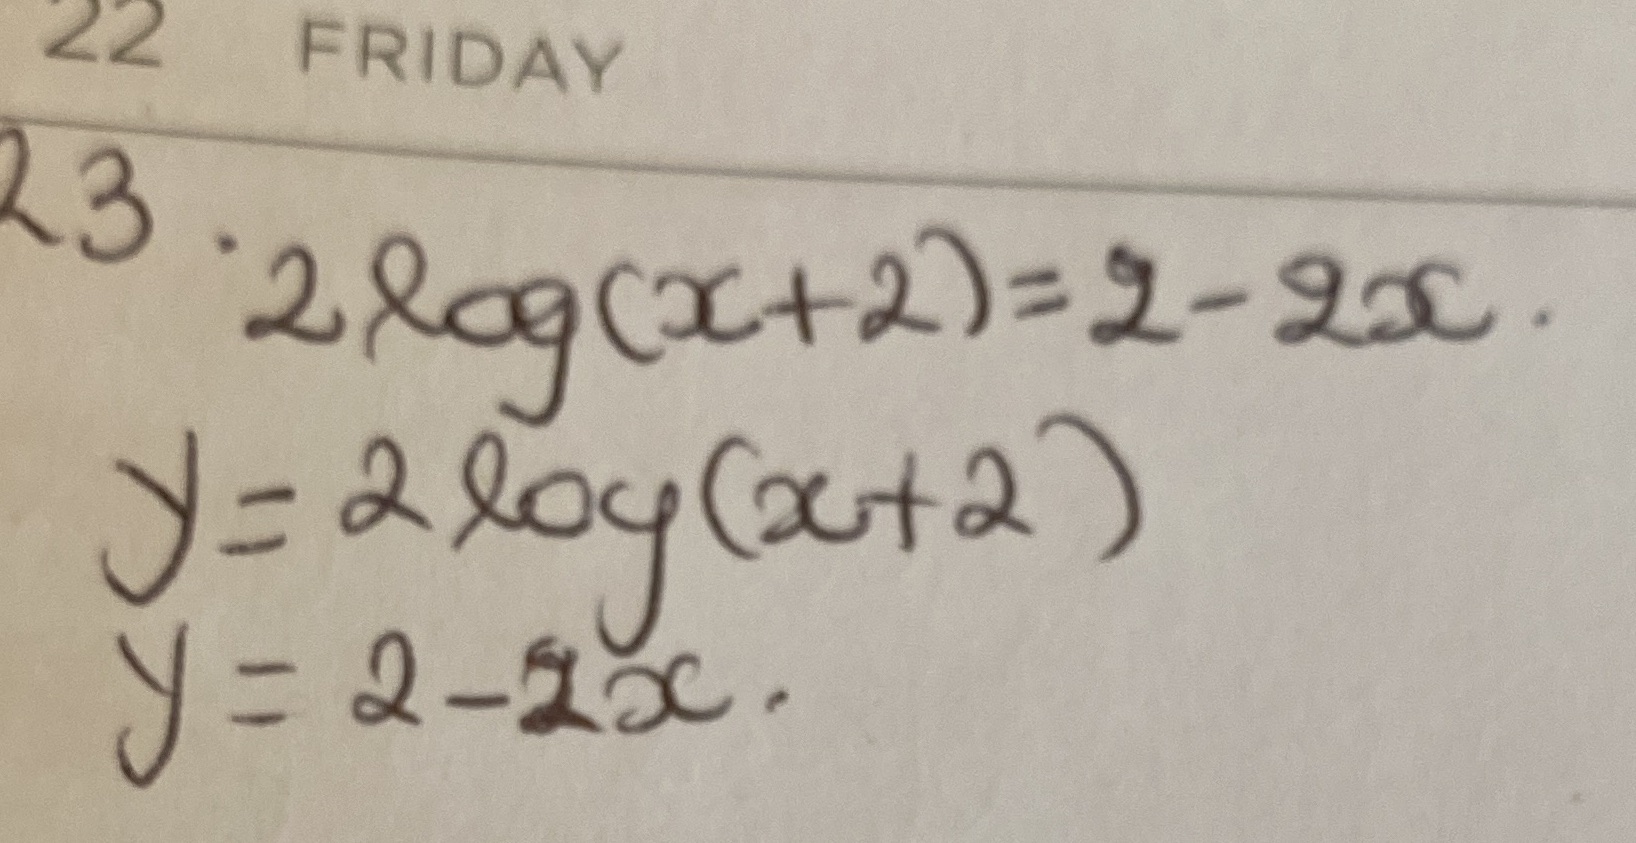 22 FRIDAY
23. 2log(x+2)=2-2x.
y=2log(x+2)
y=2-2x.